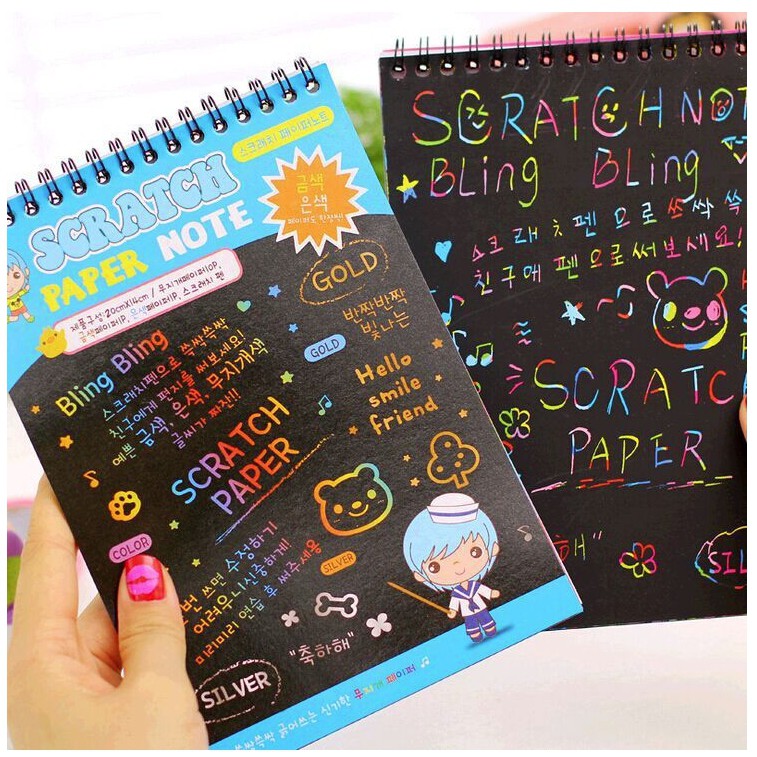 스크래치 페이퍼노트
SCRATCH
PAPER NOTE
금색
은색
제품구성:20cmX14cm / 무지개페이퍼10P,
금색페이퍼1P, 은색페이퍼1P, 스크래치 펜
GOLD
반짝반짝
빛나는
Bling Bling
스크래치펜으로 쓱싹쓱싹
친구에게 편지를 써보세요!
예쁜 금색, 은색, 무지개색
글씨가 짜잔!!
GOLD
Hello
smile
friend
SCRATCH
PAPER
COLOR
번 쓰면 수정하기
어려우니 신중하게!
미리미리 연습 후 써주세용
SILVER
"축하해"
SILVER
쓱싹쓱싹 긁어쓰는 신기한 무지개 페이퍼
SCRATCH NOT
BLing BLing
스크래치펜으로 쓱싹 쓱
친구에게 펜으로 써보세요!
SCRATC
PAPER
해"
SIL